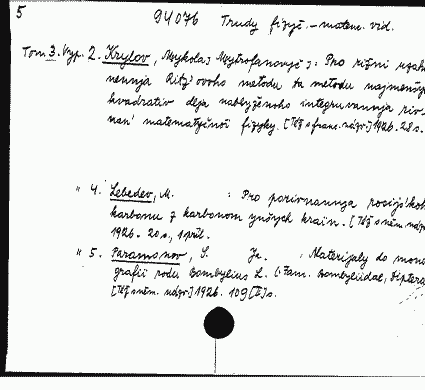 5
94076 Trudy fizyč.-matem. vid.
Tom 3. Vyp. 2. Krylov, Mykolaj Mytrofanovyč: Pro rižni uzahal
nennja Ritz'ovoho metodu ta metodu najmenšyc
kvadrativ dlja nablyženoho integruvannja riv-
nan' matematyčnoi fizyky. [Též s franc. názv.] 1926. 28 s.
" 4. Lebedev, M. : Pro porivnannja rosijs'koho
karbonu z karbonom ynšych krain. [Též s něm. názv.
1926. 20 s., 1 příl.
" 5. Paramonov, S. Ja. : Materijaly do mono
grafii rodu Bombylius L. (Fam. Bombyliidae, Diptera
[Též s něm. názv.] 1926. 109 [II] s.